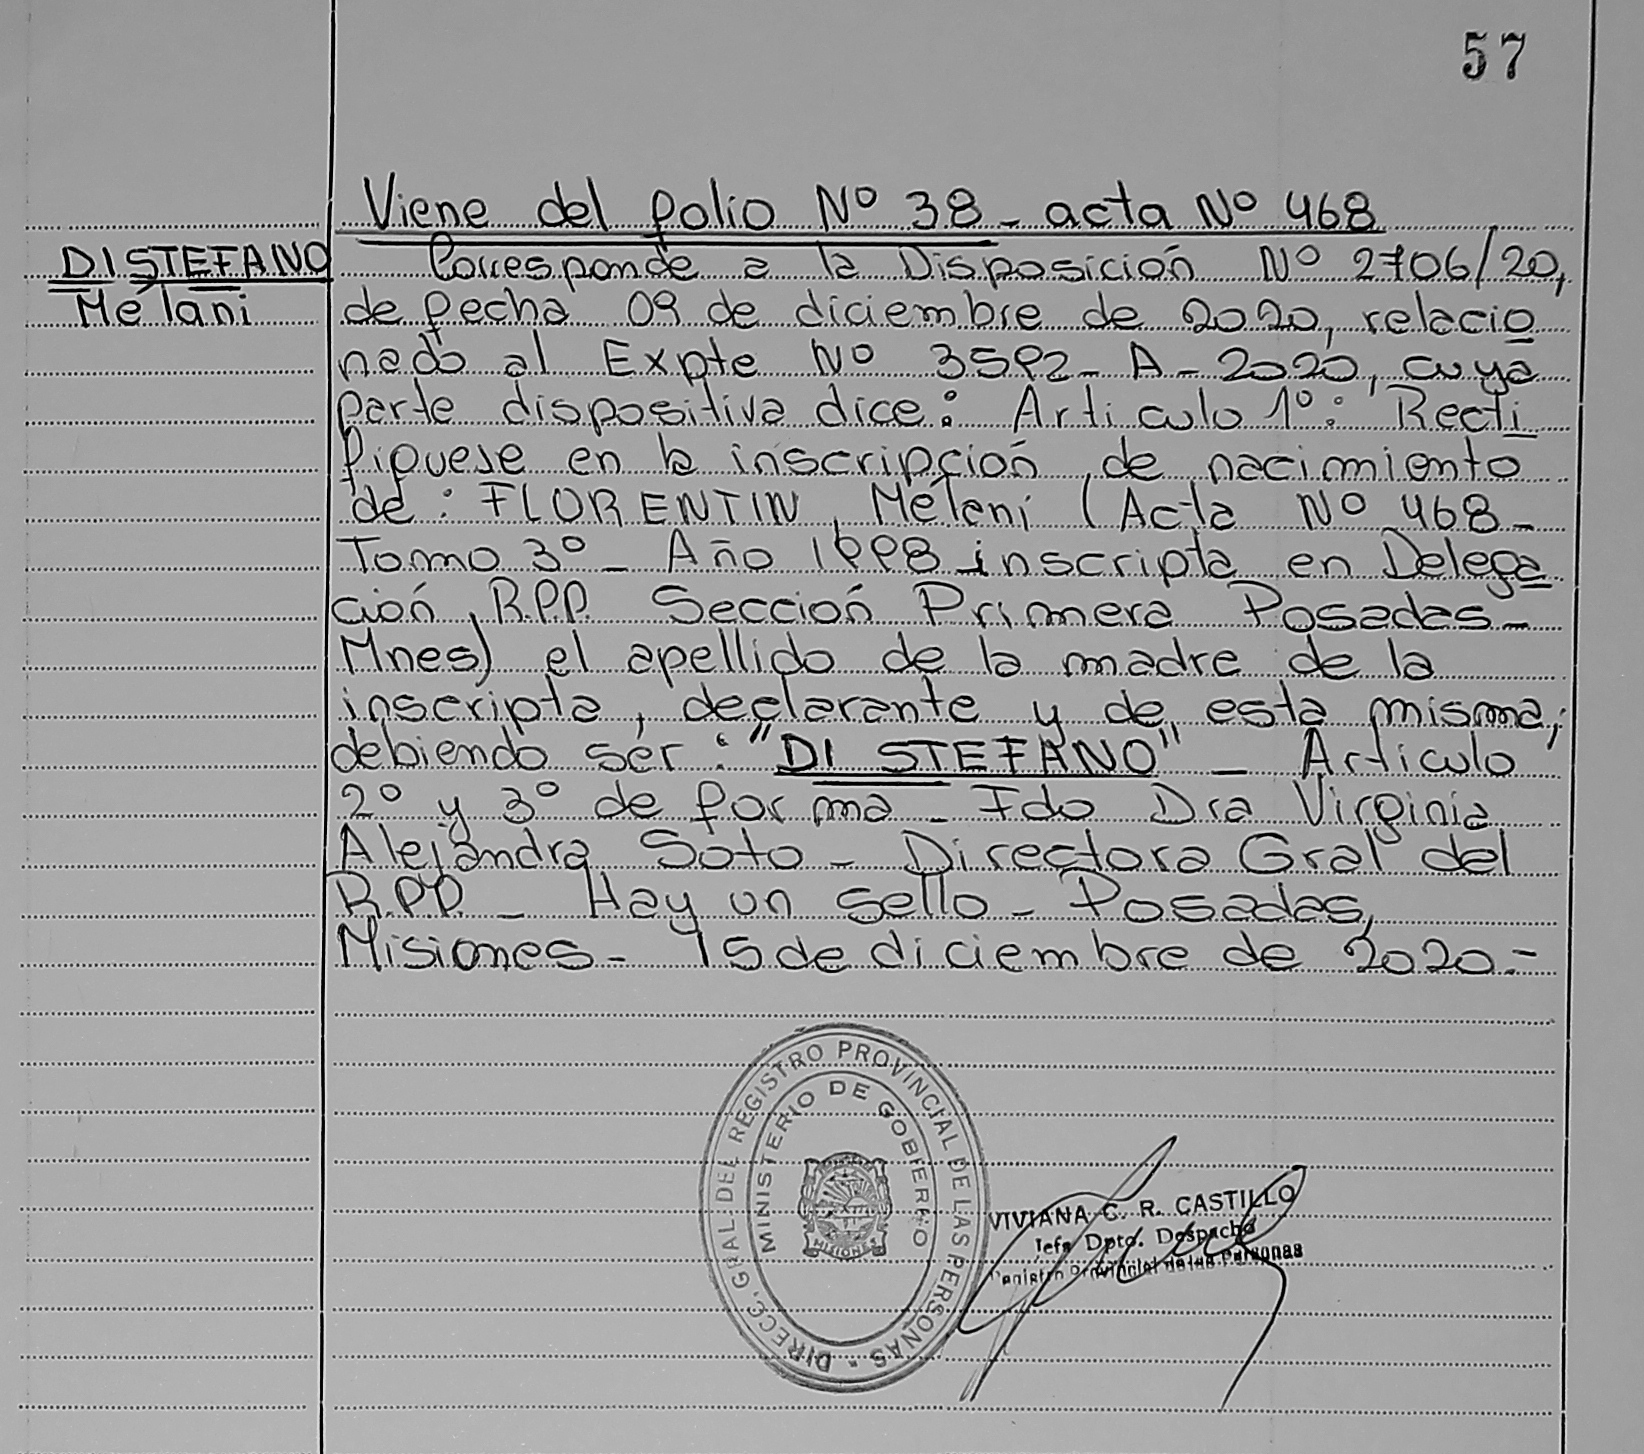 57
Viene del folio Nº 38 - acta Nº 468
DI STEFANO
Mélani
Corresponde a la Disposición Nº 2706/20,
de fecha 09 de diciembre de 2020, relacio
nado al Expte Nº 3592 - A - 2020, cuya
parte dispositiva dice: Artículo 1º: Recti
fíquese en la inscripción de nacimiento
de: FLORENTIN, Mélani (Acta Nº 468 -
Tomo 3º - Año 1998 inscripta en Delega
ción R.P.P. Sección Primera Posadas -
Mnes) el apellido de la madre de la
inscripta, declarante y de esta misma;
debiendo ser: "DI STEFANO" - Artículo
2º y 3º de forma - Fdo Dra Virginia
Alejandra Soto - Directora Gral del
R.P.P. - Hay un sello - Posadas,
Misiones - 15 de diciembre de 2020.-
DIRECC. GRAL. DEL REGISTRO PROVINCIAL DE LAS PERSONAS -
MINISTERIO DE GOBIERNO
MISIONES
VIVIANA C. R. CASTILLO
Jefa Dpto. Despacho
Registro Provincial de las Personas